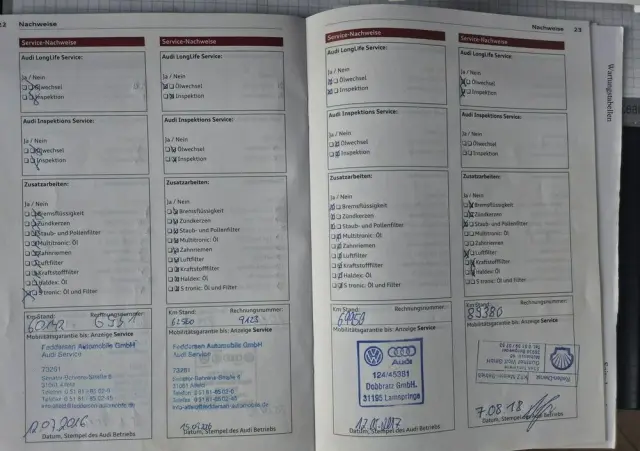 22 Nachweise
Service-Nachweise
Audi LongLife Service:
Ja / Nein
Ölwechsel
Inspektion
Audi Inspektions Service:
Ja / Nein
Ölwechsel
Inspektion
Zusatzarbeiten:
Ja / Nein
Bremsflüssigkeit
Zündkerzen
Staub- und Pollenfilter
Multitronic: Öl
Zahnriemen
Luftfilter
Kraftstofffilter
Haldex: Öl
S tronic: Öl und Filter
Km-Stand: Rechnungsnummer:
Mobilitätsgarantie bis: Anzeige Service
Feddersen Automobile GmbH
Audi Service
73261
31061 Alfeld
12.07.2016
Datum, Stempel des Audi Betriebs
Service-Nachweise
Audi LongLife Service:
Ja / Nein
Ölwechsel
Inspektion
Audi Inspektions Service:
Ja / Nein
Ölwechsel
Inspektion
Zusatzarbeiten:
Ja / Nein
Bremsflüssigkeit
Zündkerzen
Staub- und Pollenfilter
Multitronic: Öl
Zahnriemen
Luftfilter
Kraftstofffilter
Haldex: Öl
S tronic: Öl und Filter
Km-Stand: Rechnungsnummer:
Mobilitätsgarantie bis: Anzeige Service
Feddersen Automobile GmbH
Audi Service
73261
31061 Alfeld
Datum, Stempel des Audi Betriebs
Nachweise 23
Service-Nachweise
Audi LongLife Service:
Ja / Nein
Ölwechsel
Inspektion
Audi Inspektions Service:
Ja / Nein
Ölwechsel
Inspektion
Zusatzarbeiten:
Ja / Nein
Bremsflüssigkeit
Zündkerzen
Staub- und Pollenfilter
Multitronic: Öl
Zahnriemen
Luftfilter
Kraftstofffilter
Haldex: Öl
S tronic: Öl und Filter
Km-Stand: Rechnungsnummer:
Mobilitätsgarantie bis: Anzeige Service
Audi
124/45381
Dobbratz GmbH.
31195 Lamspringe
Datum, Stempel des Audi Betriebs
Service-Nachweise
Audi LongLife Service:
Ja / Nein
Ölwechsel
Inspektion
Audi Inspektions Service:
Ja / Nein
Ölwechsel
Inspektion
Zusatzarbeiten:
Ja / Nein
Bremsflüssigkeit
Zündkerzen
Staub- und Pollenfilter
Multitronic: Öl
Zahnriemen
Luftfilter
Kraftstofffilter
Haldex: Öl
S tronic: Öl und Filter
Km-Stand: Rechnungsnummer:
89380
Mobilitätsgarantie bis: Anzeige Service
7.08.18
Datum, Stempel des Audi Betriebs
Wartungstabellen